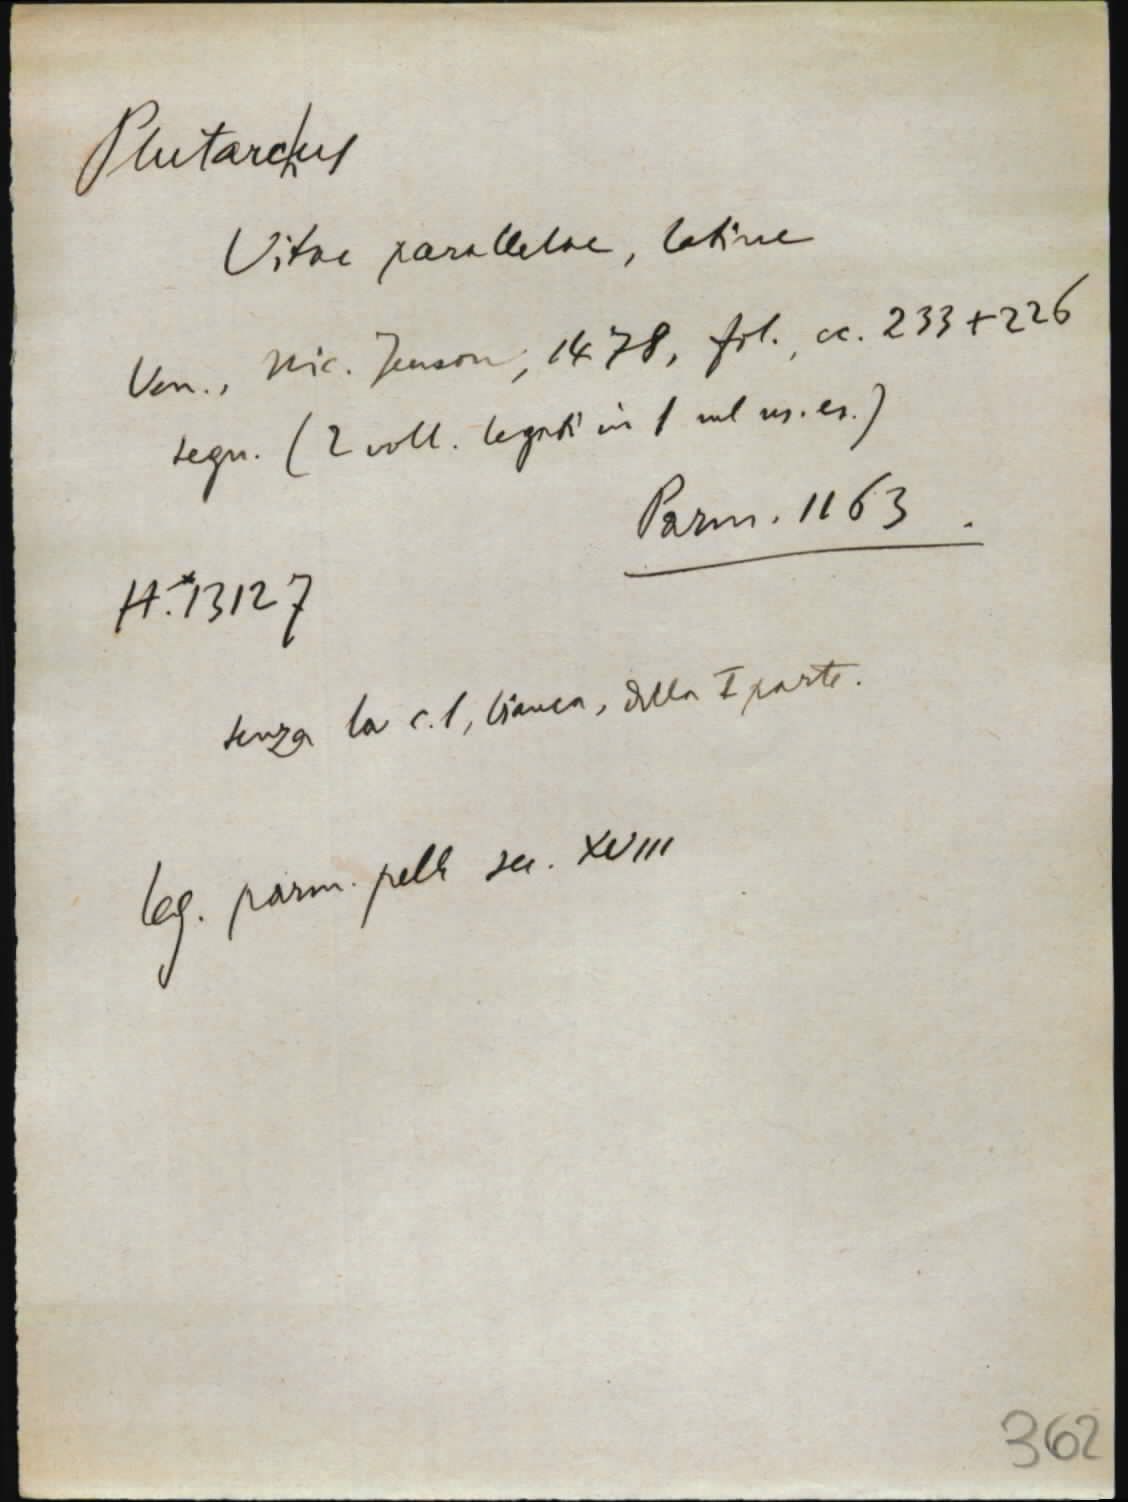 Plutarchus
Vitae parallelae, latine
Ven., Nic. Jenson, 1478, fol., cc. 233+226
segn. (2 voll. legati in 1 nel ns. es.)
Parm. 1163.
H.*13127
senza la c.1, bianca, della I parte.
leg. parm. pelle sec. XVIII
362